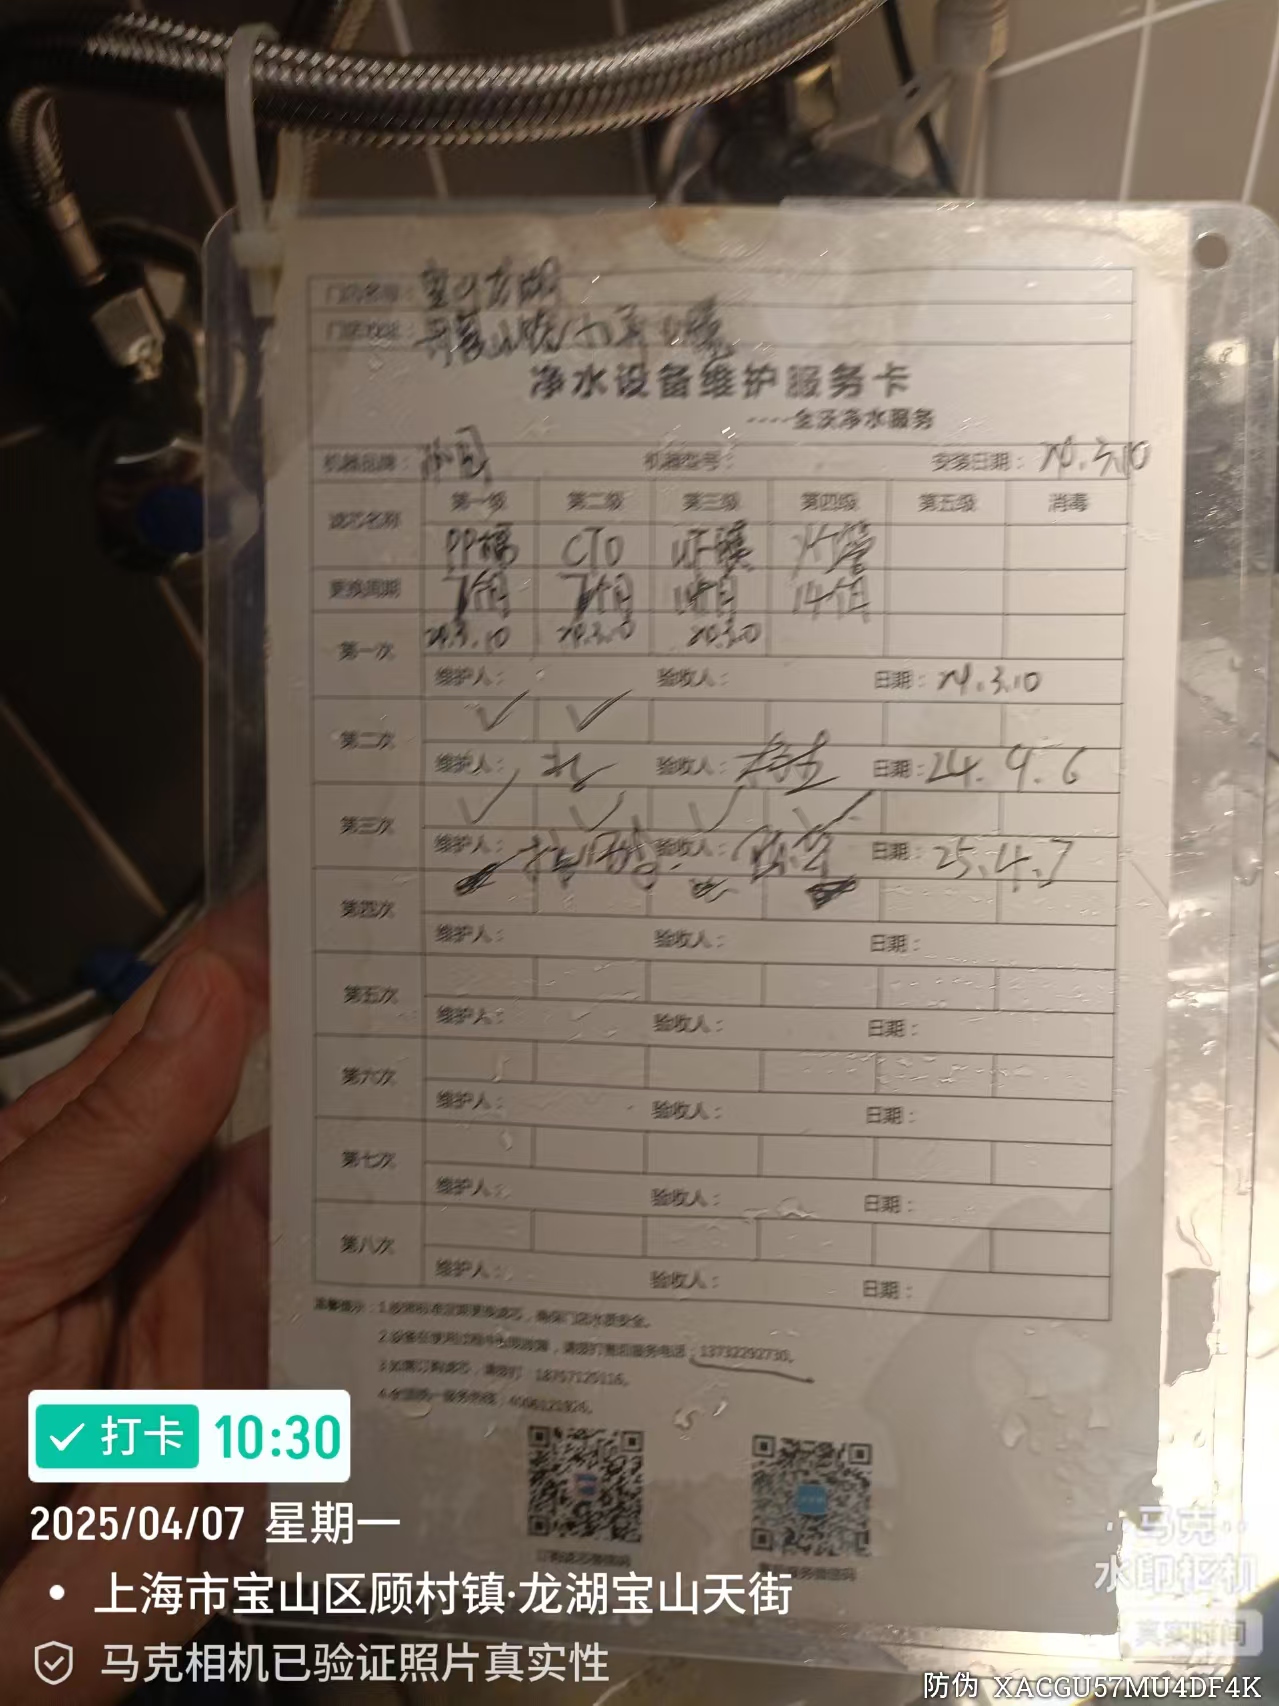 门店名称：宝山龙湖
门店地址：
净水设备维护服务卡
----金沃净水服务
机器品牌： 机器型号： 安装日期：24.3.10
滤芯名称 第一级 第二级 第三级 第四级 第五级 消毒
PP棉 CTO UF膜
更换周期 7个月 7个月 14个月 14个月
第一次 24.3.10 24.3.10 24.3.10
维护人： 验收人： 日期：24.3.10
第二次 ✓ ✓
维护人： 验收人： 日期：24.9.6
第三次 ✓ ✓ ✓ ✓
维护人： 验收人： 日期：25.4.7
第四次
维护人： 验收人： 日期：
第五次
维护人： 验收人： 日期：
第六次
维护人： 验收人： 日期：
第七次
维护人： 验收人： 日期：
第八次
维护人： 验收人： 日期：
温馨提示：1.按照标准定期更换滤芯，确保门店水质安全。
2.设备在使用过程中如现故障，请拨打售后服务电话：13732292730。
3.如需订购滤芯，请拨打：18757125116。
4.全国统一服务热线：
打卡 10:30
2025/04/07 星期一
上海市宝山区顾村镇·龙湖宝山天街
马克相机已验证照片真实性
马克
水印相机
真实时间
防伪 XACGU57MU4DF4K